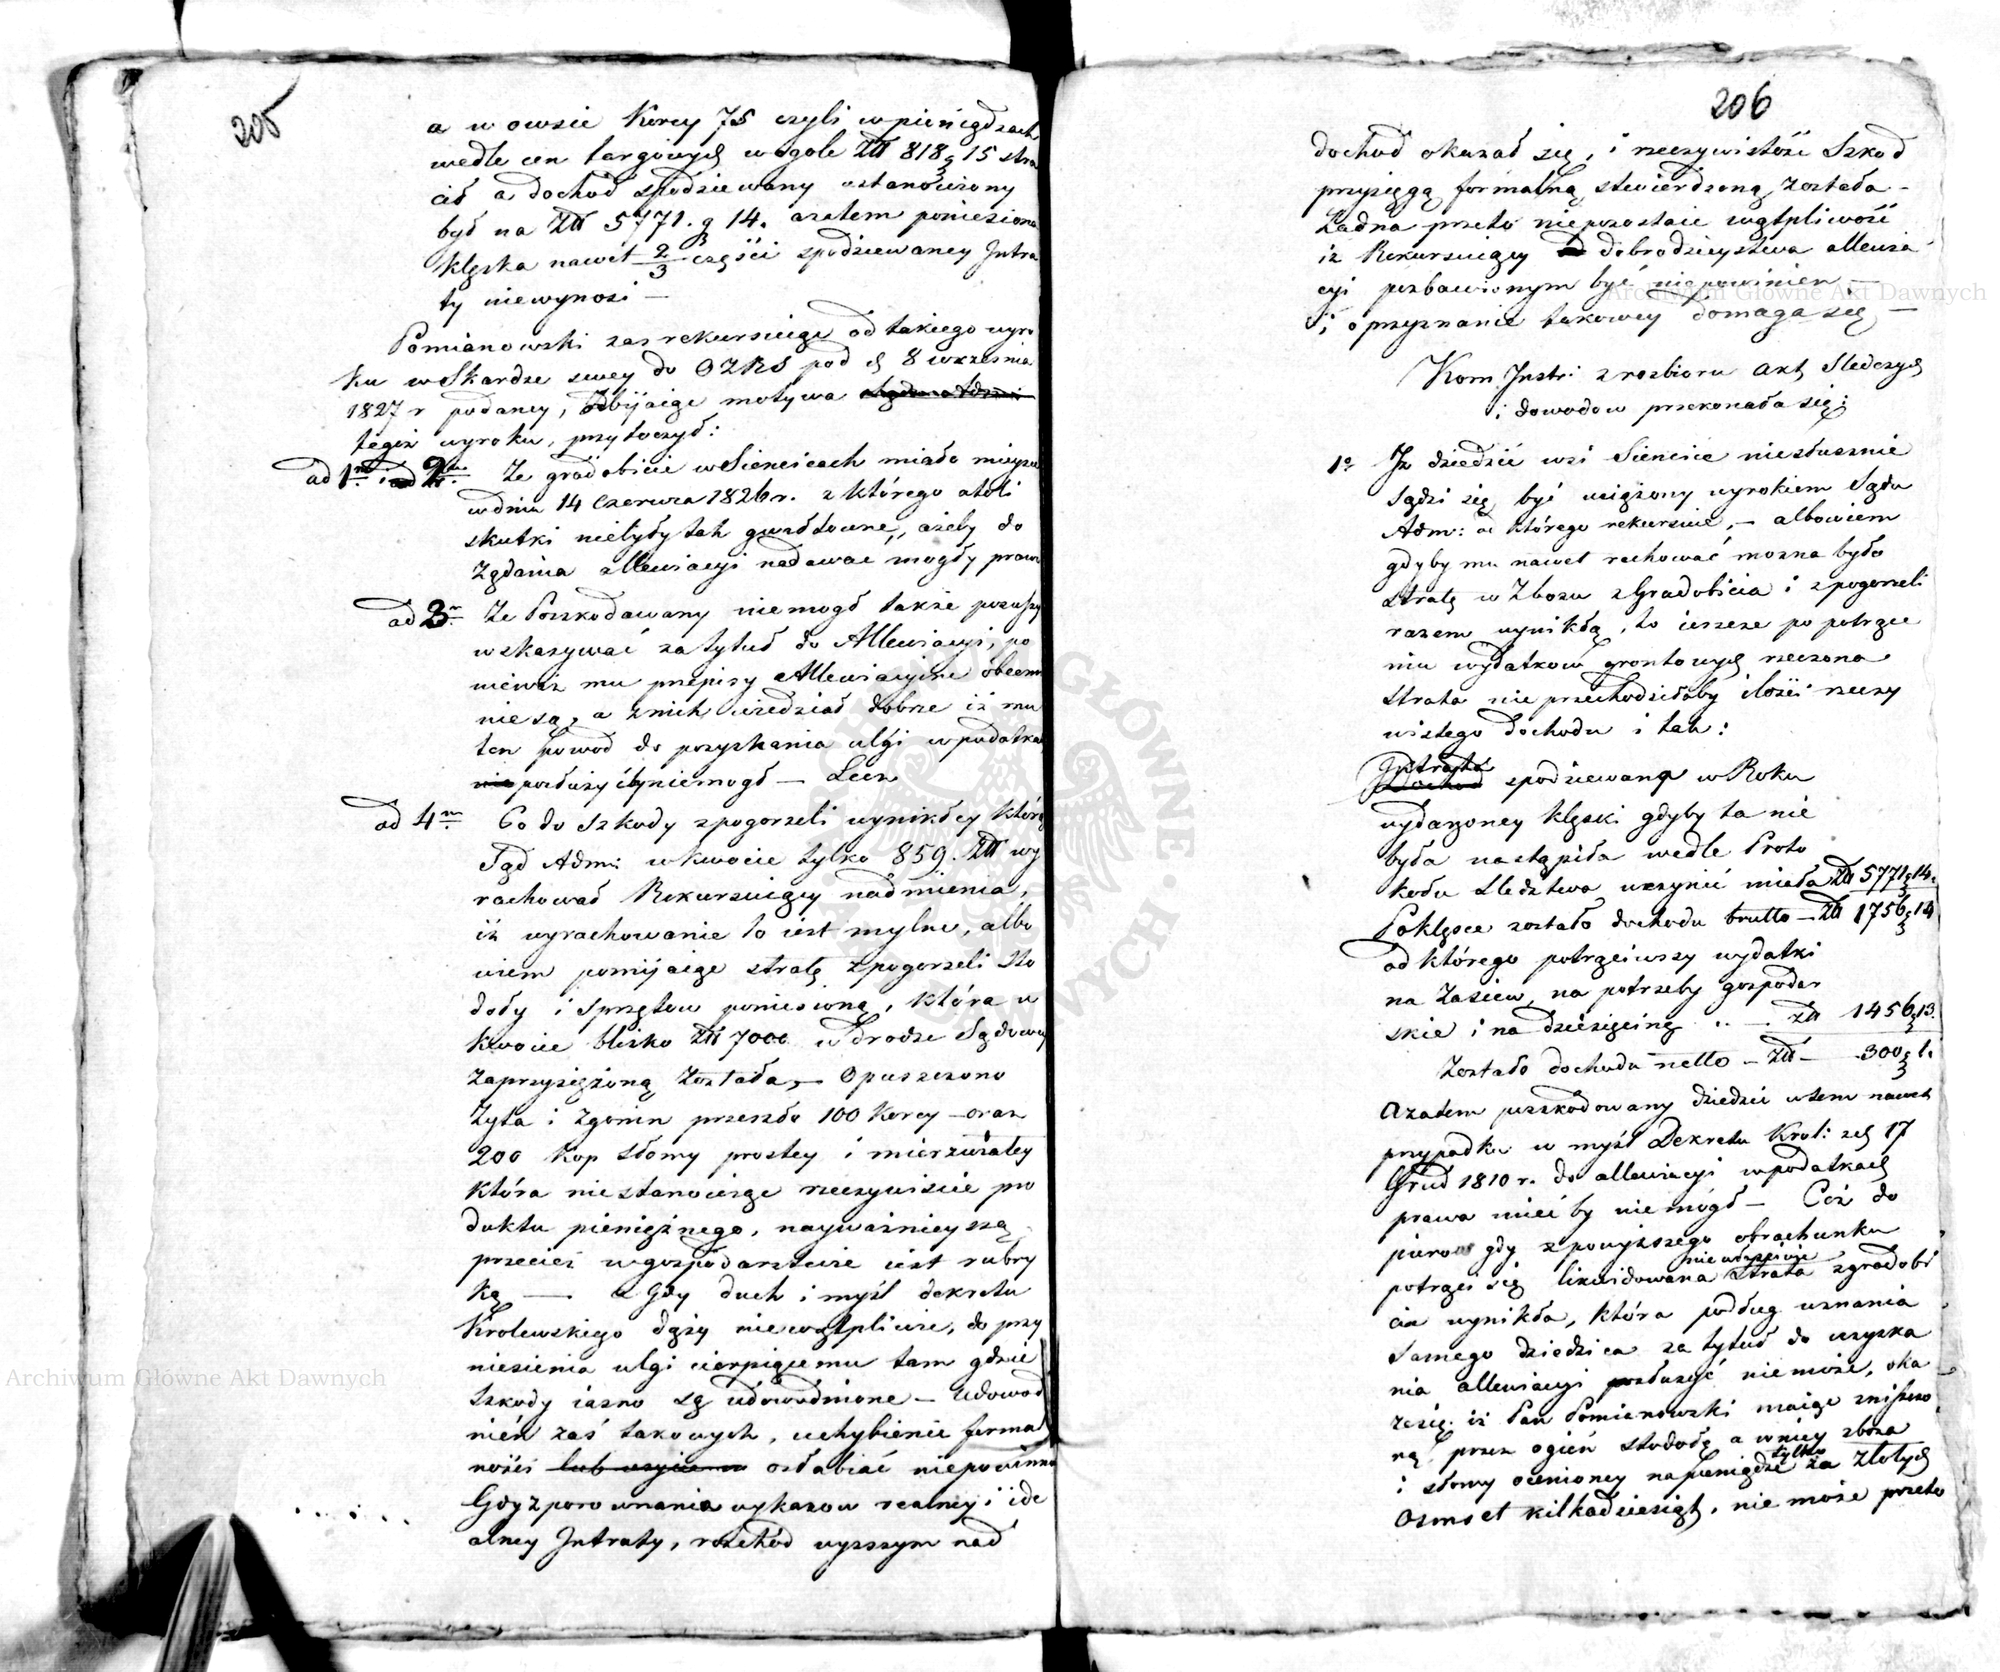 205
a w owsie Korcy 75 czyli w pieniądzach
wedle cen targowych w ogole Złł 818 g 15 stra
cił a dochód spodziewany ustanowiony
był na Złł 5771. g 14. azatem poniesiona
klęska nawet 2/3 części spodziewaney Intra
ty niewynosi —
Pomianowski zas rekursuiąc od takiego wyro
ku w Skardze swey do OZRS pod d 8 września
1827 r podaney, odbijaiąc motywa
tegoż wyroku, przytoczył:
ad 1m i ad 2m. Ze gradobicie w Siencicach miało mieysce
w dniu 14 Czerwca 1826 r. z którego atoli
skutki niebyły tak gwałtowne, ażeby do
żądania allewiacyi nadawać mogły prawo
ad 3m. Ze Poszkodowany niemogł także posuszy
wskazywać za tytuł do Allewiacyi, po
nieważ mu przepisy Allewiacyine obcemi
nie są, a z nich wiedział dobrze iż mu
ten powod do pozyskania ulgi w podatkach
nie posłużyćby niemogł — Lecz
ad 4m. Co do Szkody z pogorzeli wynikłey którą
Sąd Adm: w kwocie tylko 859. Złł wy
rachował Rekursuiący nadmienia,
iż wyrachowanie to iest mylne, albo
wiem pomijaiąc stratę z pogorzeli Sto
doły i Sprzętow poniesioną, która w
kwocie blisko Złł 7000 w drodze Sądowey
zaprzysiężoną została, — Opuszczono
żyta i zgonin przeszło 100 Korcy — oraz
200 kop słomy prostey i mierzwiatey
która niestanowiąc rzeczywiście pro
duktu pieniężnego, nayważnieyszą
przecież w gospodarstwie iest rubry
ką — a Gdy duch i myśl dekretu
Krolewskiego dąży niewątpliwie, do przy
niesienia ulgi cierpiącemu tam gdzie
szkody iasno są udowodnione — udowod
nień zaś takowych, uchybienie formal
ności osłabiać niepowinno
Gdy z porownania wykazow realney i ide
alney Intraty, rozchód wyższym nad
206
dochod okazał się, i rzeczywistość Szkod
przysięgą formalną stwierdzoną została —
Żadna przeto niepozostaie wątpliwość
iż Rekursuiący dobrodzieystwa allewia
cyi pozbawionym być niepowinien —
i o przyznanie takowey domaga się —
Kom Instr: z rozbioru akt Sledczych
i dowodow przekonała się:
1o Iż dziedzic wsi Siencic niesłusznie
Sądzi się być uciążony wyrokiem Sądu
Adm: od którego rekursuie, — albowiem
gdyby mu nawet rachować można było
stratę w Zbożu z Gradobicia i z pogorzeli
razem wynikłą, to ieszcze po potrące
niu wydatkow grontowych rzeczona
strata nie przechodziłaby ilości rzeczy
wistego dochodu i tak:
Intrata
spodziewana w Roku
wydarzoney klęski gdyby ta nie
była nastąpiła wedle Proto
kołu Sledztwa uczynić miała Złł 5771 g 14.
Po klęsce zostało dochodu brutto — Złł 1756 g 14
od którego potrąciwszy wydatki
na Zasiew, na potrzeby gospodar
skie i na dziesięcinę .. — . Złł 1456 g 13.
Zostało dochodu netto — Złł — 300 g 1.
Azatem poszkodowany dziedzic w tem nawet
przypadku w myśl Dekretu Krol: z d 17
Grud 1810 r. do allewiacyi w podatkach
prawa mieć by nie mógł — Cóż do
piero gdy z powyższego obrachunku
potrąci się likwidowana niewłaściwie strata z gradobi
cia wynikła, która podług uznania
samego dziedzica za tytuł do uzyska
nia allewiacyi posłużyć niemoże, oka
że się iż Pan Pomianowski maiąc zniszczo
ną przez ogień stodołę a w niey zboża
i słomy ocenioney na pieniądze tylko za Złotych
osmset kilkadziesiąt, nie może przeto